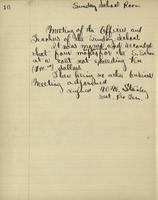 16
Sunday School Room
Meeting of the Officers and
Teachers of the Sunday School
It was moved and seconded
that four for the S. School
at a cost not exceeding Ten
dollars
There being no other business
Meeting adjourned
signed W.W.
Sect. Pro Tem